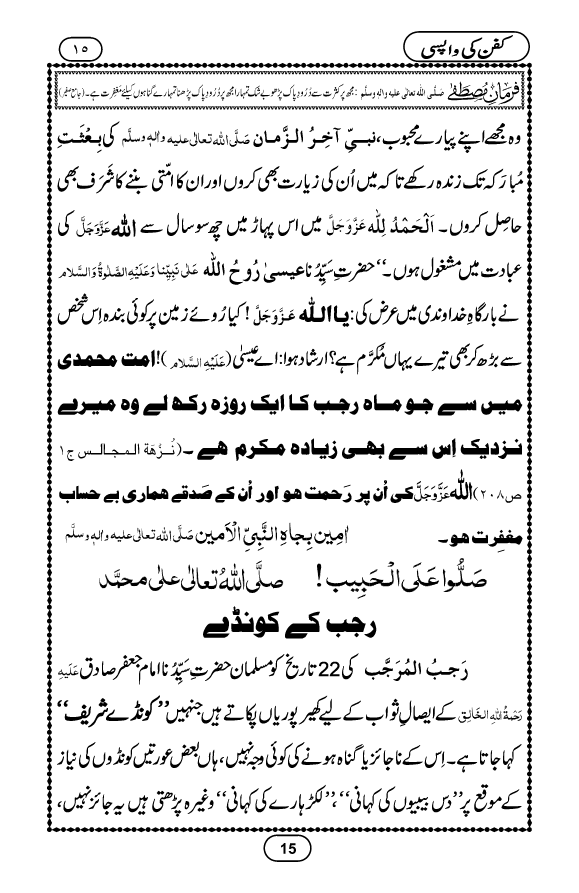 کفن کی واپسی
۱۵
فرمانِ مصطفےٰ صلَّی اللہ تعالٰی علیہ واٰلہٖ وسلَّم : مجھ پر کثرت سے دُرُودِ پاک پڑھو بے شک تمہارا مجھ پر دُرُودِ پاک پڑھنا تمہارے گناہوں کیلئے مغفرت ہے۔ (جامع صغیر)
وہ مجھے اپنے پیارے محبوب، نبیِّ آخِرُ الزَّمان صَلَّی اللہ تعالٰی علیہ واٰلہٖ وسلَّم کی بِعْثَتِ
مُبارَکہ تک زندہ رکھے تاکہ میں اُن کی زیارت بھی کروں اور ان کا امّتی بننے کا شَرَف بھی
حاصِل کروں۔ اَلْحَمْدُ لِلّٰہ عَزَّوَجَلَّ میں اس پہاڑ میں چھ سو سال سے اللہ عَزَّوَجَلَّ کی
عبادت میں مشغول ہوں۔‘‘ حضرتِ سیِّدُنا عیسیٰ رُوحُ اللہ عَلٰی نَبِیِّنا وَعَلَیْہِ الصَّلٰوۃُ وَالسَّلام
نے بارگاہِ خداوندی میں عرض کی: یا اللہ عَزَّوَجَلَّ ! کیا رُوئے زمین پر کوئی بندہ اِس شخص
سے بڑھ کر بھی تیرے یہاں مُکَرَّم ہے؟ ارشاد ہوا: اے عیسیٰ (عَلَیْہِ السَّلام)! امت محمدی
میں سے جو ماہِ رجب کا ایک روزہ رکھ لے وہ میرے
نزدیک اِس سے بھی زیادہ مکرم ھے ۔ (نُزہَۃ المجالس ج۱
ص۲۰۸) اللہ عَزَّوَجَلَّ کی اُن پر رَحمت ھو اور اُن کے صَدقے ھماری بے حساب
مغفِرت ھو۔ اٰمِین بِجاہِ النَّبِیِّ الْاَمین صَلَّی اللہ تعالٰی علیہ واٰلہٖ وسلَّم
صَلُّوا عَلَی الْحَبِیب ! صلَّی اللہُ تعالٰی علٰی محمَّد
رجب کے کونڈے
رَجبُ المُرَجَّب کی 22 تاریخ کو مسلمان حضرتِ سیِّدُنا امام جعفر صادق عَلَیْہِ
رَحْمَۃُ اللہِ الْخَالِق کے ایصالِ ثواب کے لیے کھیر پوریاں پکاتے ہیں جنہیں ’’کونڈے شریف‘‘
کہا جاتا ہے۔ اِس کے ناجائز یا گناہ ہونے کی کوئی وجہ نہیں، ہاں بعض عورتیں کونڈوں کی نیاز
کے موقع پر ’’دس بیبیوں کی کہانی‘‘، ’’لکڑہارے کی کہانی‘‘ وغیرہ پڑھتی ہیں یہ جائز نہیں،
15